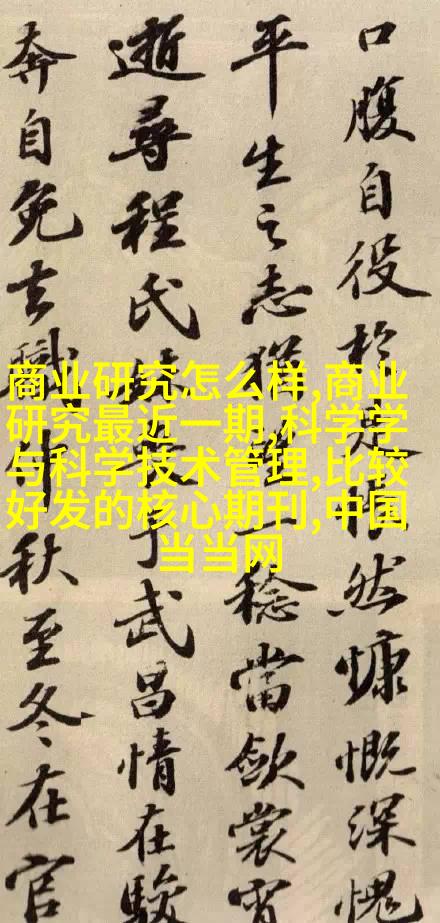 商业研究怎么样,商业
研究最近一期,科学学
与科学技术管理,比较
好发的核心期刊,中国
当当网
口腹自役於然慷慨深愧
平生之志一稔當斂裳宵
逝尋程氏于武昌情在駿
奔自免去職秋至冬在官